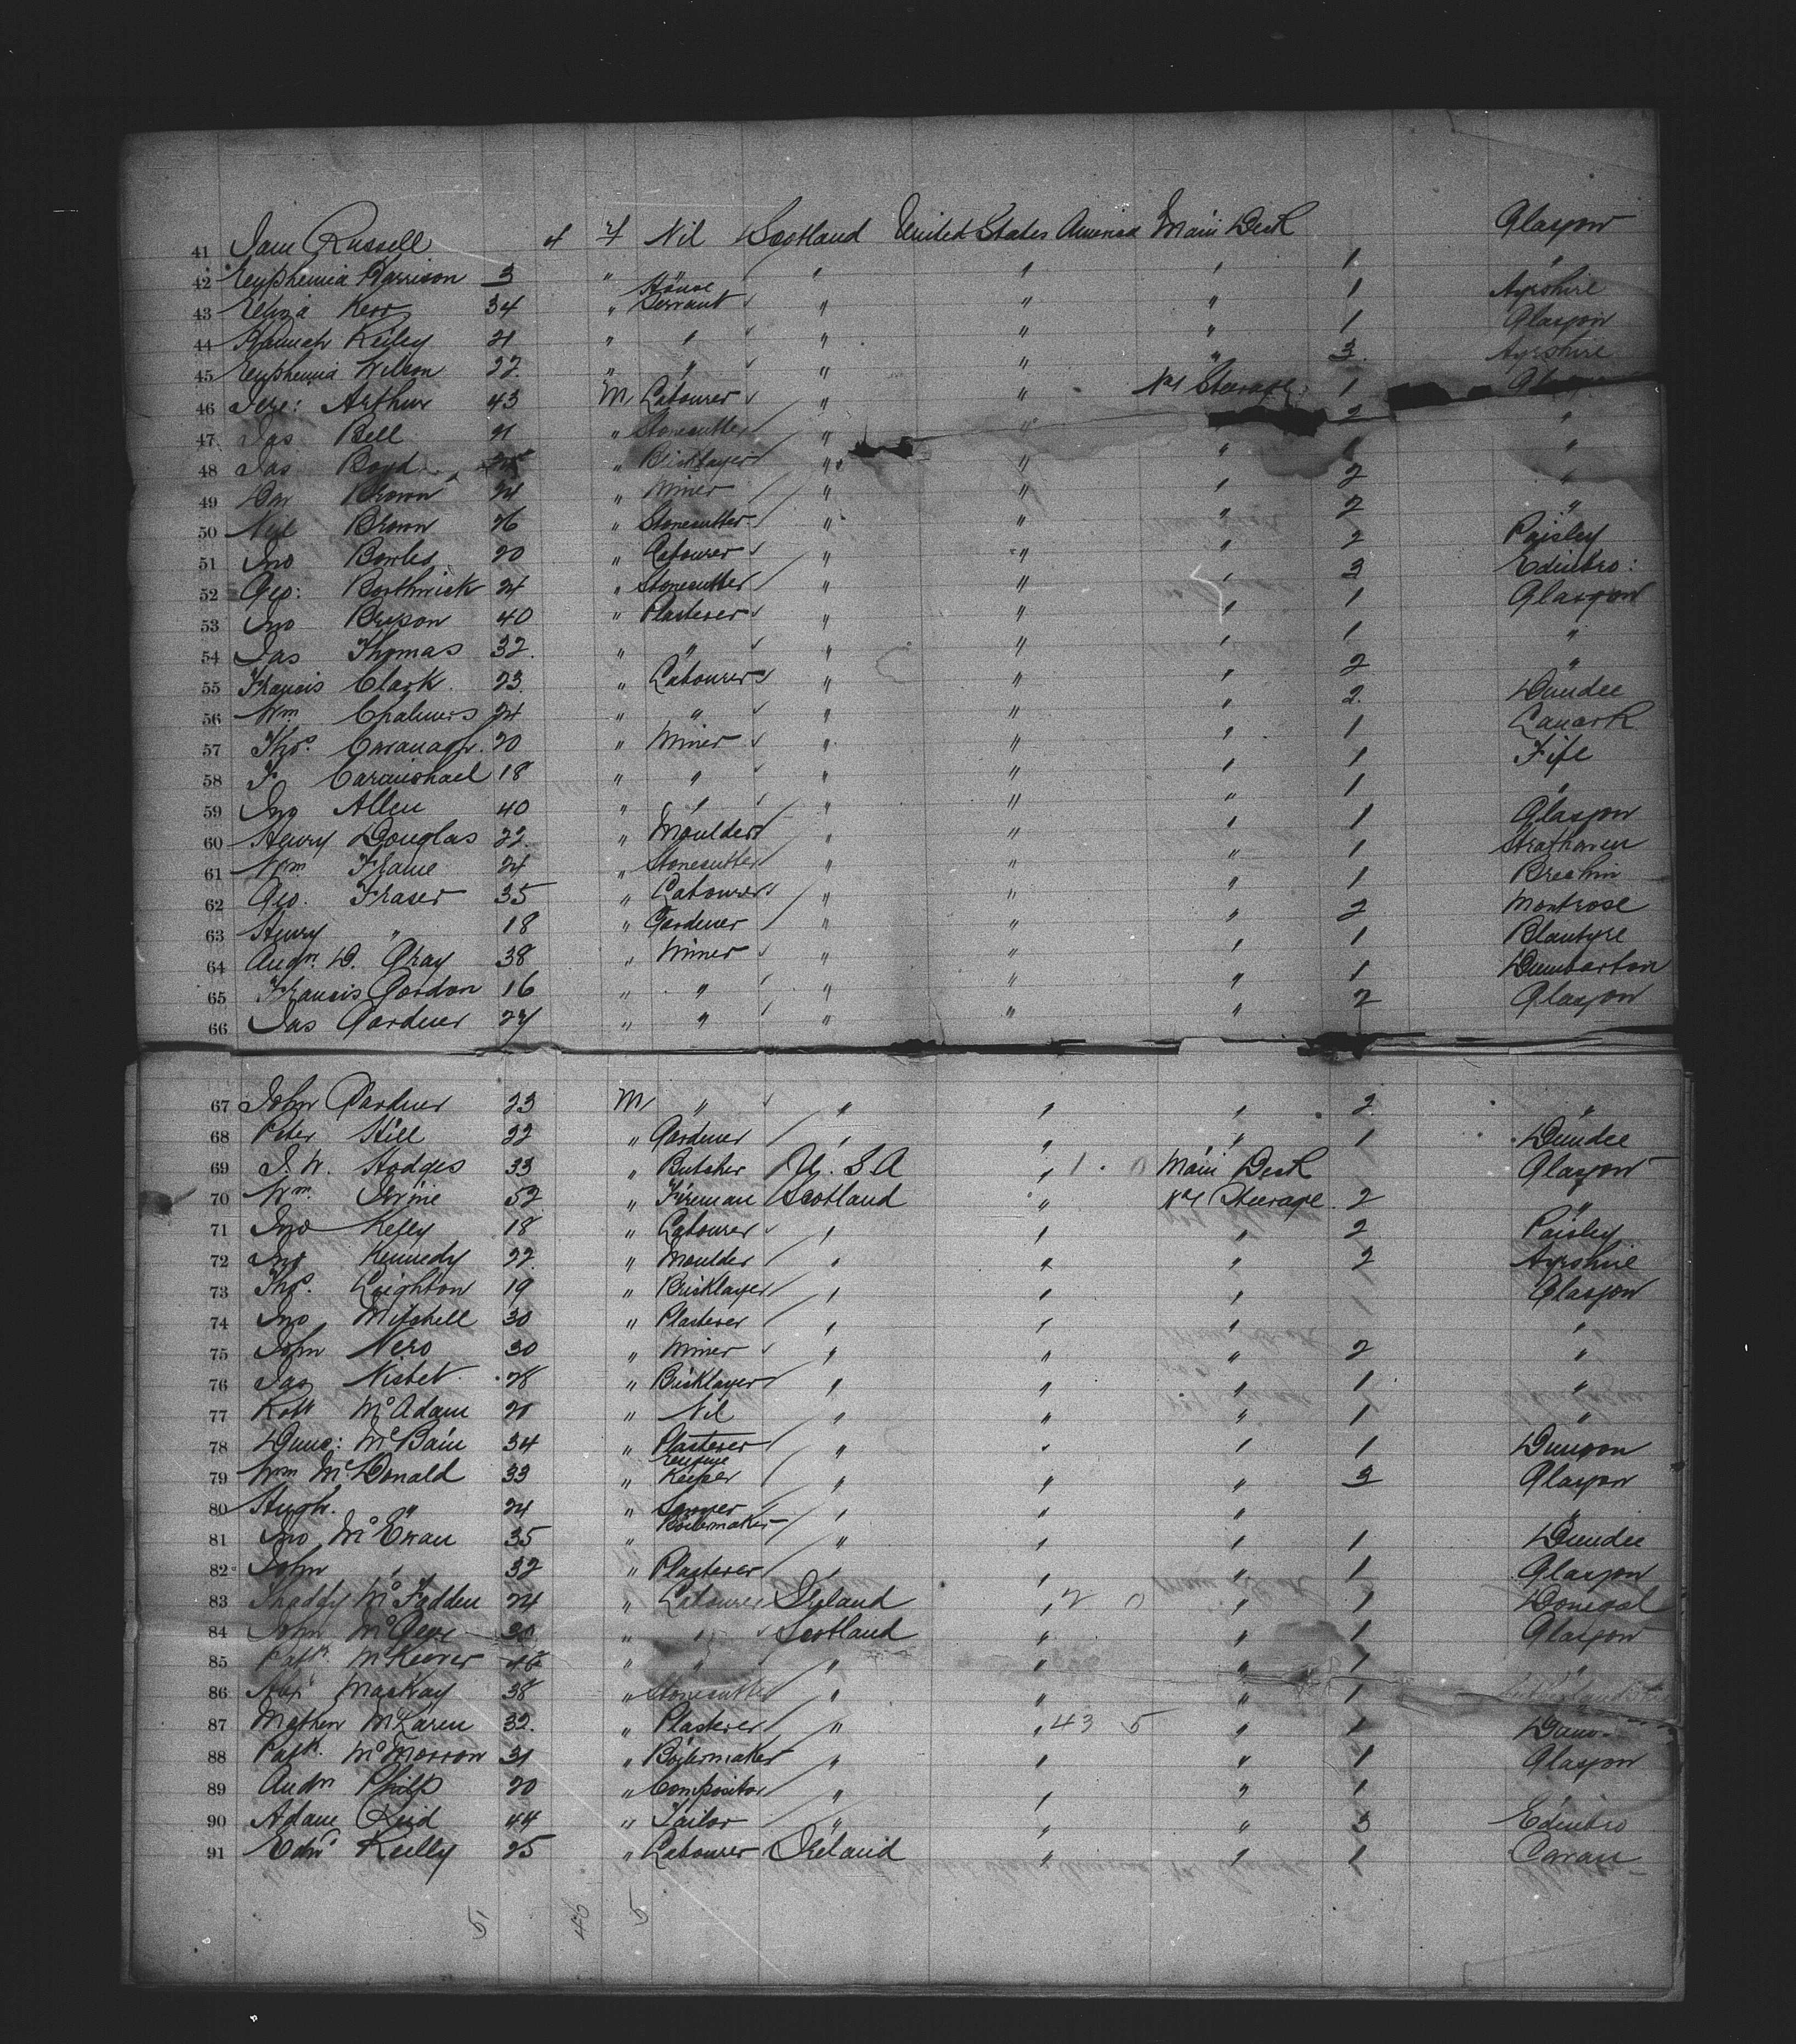 41 Jane Russell 4 F Nil Scotland United States America Main Deck Glasgow
42 Euphemia Harrison 3 " " " " 1 "
43 Eliza Kerr 34 " House Servant " " " 1 Ayrshire
44 Hannah Keiley 21 " " " " " 1 Glasgow
45 Euphemia Wilson 22 " " " " " 3 Ayrshire
46 Arthur 43 M Labourer " " No 1 Steerage 1
47 Jas Bell 21 " Stonecutter " " 2 "
48 Jas Boyd " Bricklayer " " " 1 "
49 Brown 24 " Miner " " " 2 "
50 Neil Brown 26 " Stonecutter " " " 2 "
51 Jno Bowles 20 " Labourer " " " 2 Paisley
52 Geo: Borthwick 24 " Stonecutter " " " 3 Edinbro:
53 Jno Bryson 40 " Plasterer " " " 1 Glasgow
54 Jas Thomas 32 " " " " " 1 "
55 Francis Clark 23 " Labourer " " " 2 "
56 Wm Chalmers 24 " " " " " 2 Dundee
57 Thos. Cavanagh 20 " Miner " " " 1 Lanark
58 Carmichael 18 " " " " " 1 Fife
59 Jno Allen 40 " " " " " 1 "
60 Henry Douglas 22 " Moulder " " " 1 Glasgow
61 Wm Frame 24 " Stonecutter " " " 1 Strathaven
62 Geo. Fraser 35 " Labourer " " " 1 Brechin
63 Henry " 18 " Gardener " " " 2 Montrose
64 D. Gray 38 " Miner " " " 1 Blantyre
65 Francis Gordon 16 " " " " " 1 Dumbarton
66 Jas Gardner 27 " " " " " 2 Glasgow
67 John Gardner 23 M " " " " 2 "
68 Peter Hill 22 " Gardener " " " 1 Dundee
69 J. W. Hodges 33 " Butcher U. S. A " 1 . 0 Main Deck Glasgow
70 Wm. Irvine 52 " Fireman Scotland " No 1 Steerage 2 "
71 Jno Kelly 18 " Labourer " " " 2 Paisley
72 Jno Kennedy 22 " Moulder " " " 2 Ayrshire
73 Thos. Leighton 19 " Bricklayer " " " Glasgow
74 Jno Mitchell 30 " Plasterer " " " "
75 John Nero 30 " Miner " " " 2 "
76 Jas Nisbet 28 " Bricklayer " " " 1 "
77 Robt McAdam 20 " Nil " " " 1 "
78 Dunc: McBain 34 " Plasterer " " " 1 Dunoon
79 Wm McDonald 33 " Engine Keeper " " " 3 Glasgow
80 Hugh " 24 " Sawyer " " " "
81 Jno McEwan 35 " Boilermaker " " " 1 Dundee
82 John " 32 " Plasterer " " " 1 Glasgow
83 Thaddy McFadden 24 " Labourer Ireland " 2 0 " 1 Donegal
84 John " " Scotland " " 1 Glasgow
85 Patk. McKeever " " " " " 1 "
86 Alexr MacKay 38 " Stonecutter " " " 1
87 Mathew McLaren 32 " Plasterer " " 43 5 " 1
88 Patk. McMorron 31 " Boilermaker " " " 1 Glasgow
89 Andw Philp 20 " Compositor " " " 1 "
90 Adam Reid 44 " Tailor " " " 3 Edinbro
91 Edwd Reilly 25 " Labourer Ireland " " 1 Cavan
51 46 5